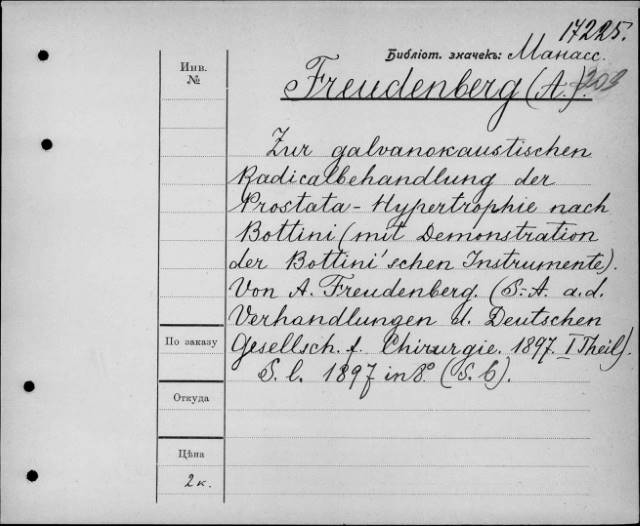 17225.
Библіот. значекъ: Манасс.
Инв.
№
Freudenberg (A.).
203
Zur galvanokaustischen
Radicalbehandlung der
Prostata-Hypertrophie nach
Bottini (mit Demonstration
der Bottini'schen Instrumente).
Von A. Freudenberg. (S.-A. a. d.
Verhandlungen d. Deutschen
По заказу
Gesellsch. f. Chirurgie. 1897. I Theil).
S. l. 1897 in 8º. (S. 6).
Откуда
Цѣна
2 к.